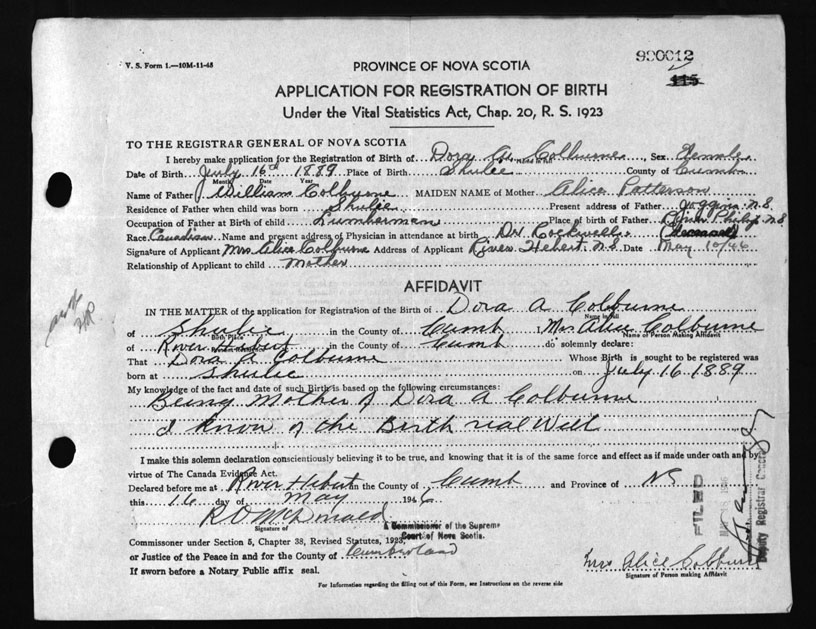 V. S. Form 1.—10M-11-45
PROVINCE OF NOVA SCOTIA
990012
115
APPLICATION FOR REGISTRATION OF BIRTH
Under the Vital Statistics Act, Chap. 20, R. S. 1923
TO THE REGISTRAR GENERAL OF NOVA SCOTIA
I hereby make application for the Registration of Birth of Dora A. Colburne, Sex Female
Date of Birth July 16th 1889 Place of Birth Shulee County of Cumb
Month Date Year
Name of Father William Colburne MAIDEN NAME of Mother Alice Patterson
Residence of Father when child was born Shulie Present address of Father Joggins N.S.
Occupation of Father at Birth of child Lumberman Place of birth of Father River Philip N.S.
Race Canadian Name and present address of Physician in attendance at birth Dr Rockwell (Deceased)
Signature of Applicant Mrs Alice Colburne Address of Applicant River Hebert N.S. Date May 16/46
Relationship of Applicant to child Mother
AFFIDAVIT
IN THE MATTER of the application for Registration of the Birth of Dora A Colburne
Name in full
of Shulie in the County of Cumb Mrs Alice Colburne
Birth Place Name of Person Making Affidavit
of River Hebert in the County of Cumb do solemnly declare:
That Dora A Colburne Whose Birth is sought to be registered was
born at Shulie on July 16 1889
My knowledge of the fact and date of such Birth is based on the following circumstances:
Being Mother of Dora A Colburne
I know of the Birth real Well
I make this solemn declaration conscientiously believing it to be true, and knowing that it is of the same force and effect as if made under oath and by
virtue of The Canada Evidence Act.
Declared before me at River Hebert in the County of Cumb and Province of NS
this 16 day of May 1946
R O McDonald
Signature of
A Commissioner of the Supreme
Court of Nova Scotia.
Commissioner under Section 5, Chapter 38, Revised Statutes, 1923,
or Justice of the Peace in and for the County of Cumberland
If sworn before a Notary Public affix seal.
Mrs Alice Colburne
Signature of Person making Affidavit
For Information regarding the filling out of this Form, see Instructions on the reverse side
FILED
Deputy Registrar General